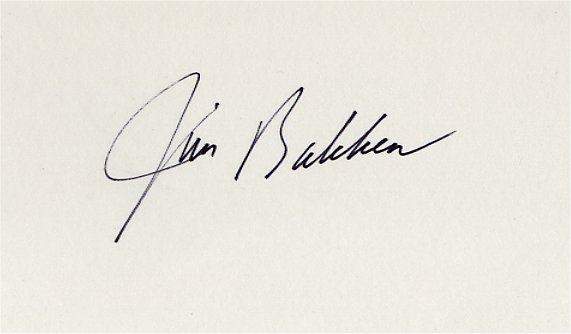 Jim Bakken